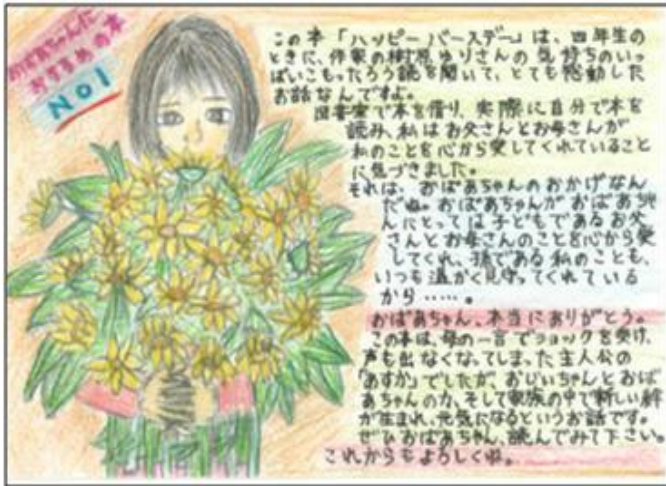 おばあちゃんに
おすすめの本
NO1
この本「ハッピーバースデー」は、四年生の
ときに、作家の樹原ゆりさんの気持ちのいっ
ぱいこもったろう読を聞いて、とても感動した
お話なんですよ。
図書室で本を借り、実際に自分で本を
読み、私はお父さんとお母さんが
私のことを心から愛してくれていること
に気づきました。
それは、おばあちゃんのおかげなん
だね。おばあちゃんがおばあちゃ
んにとっては子どもであるお父
さんとお母さんのことを心から愛
してくれ、孫である私のことも、
いつも温かく見守ってくれている
から……。
おばあちゃん、本当にありがとう。
この本は、母の一言でショックを受け、
声も出なくなってしまった主人公の
「あすか」でしたが、おじいちゃんとおば
あちゃんの力、そして家族の中で新しい絆
が生まれ、元気になるというお話です。
ぜひおばあちゃん、読んでみて下さい。
これからもよろしくね。